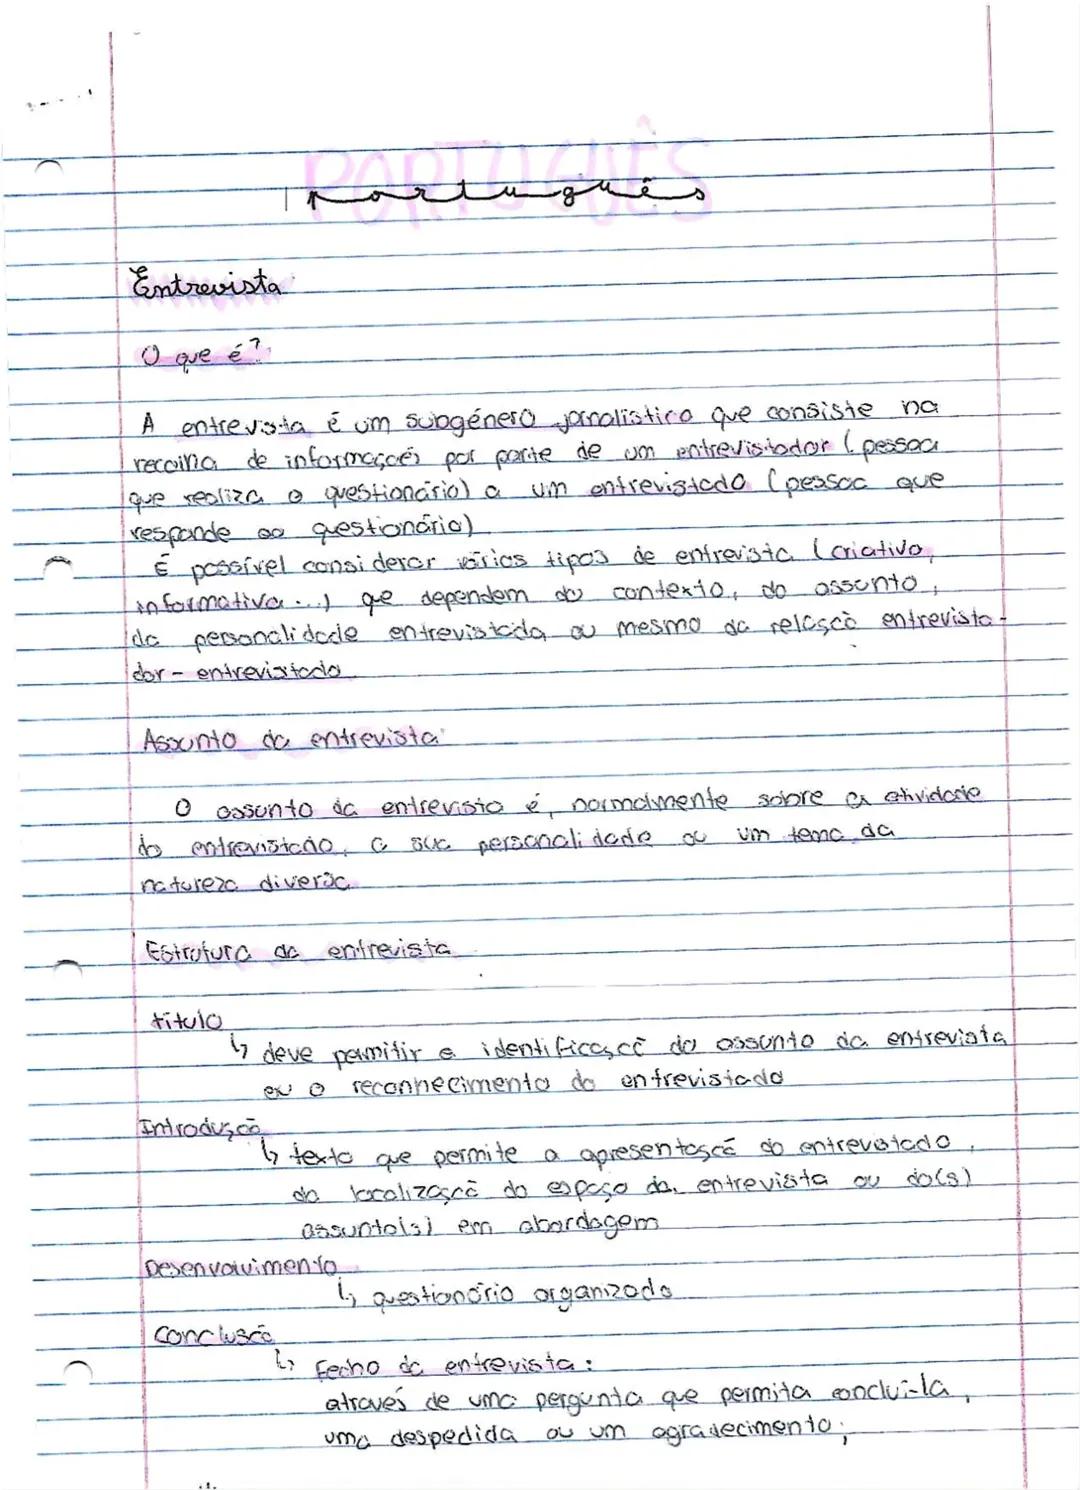 PORTUGUÊS
português
Entrevista
O que é?
A entrevista é um subgénero jornalístico que consiste na
recolha de informações por parte de um entrevistador (pessoa
que realiza o questionário) a um entrevistado (pessoa que
responde ao questionário)
É possível considerar vários tipos de entrevista (criativo,
informativa...) que dependem do contexto, do assunto,
da personalidade entrevistada ou mesmo da relação entrevista-
dor - entrevistado
Assunto da entrevista
O assunto da entrevista é, normalmente sobre a atividade
do entrevistado, a sua personalidade ou um tema da
natureza diversa
Estrutura da entrevista
título
↳ deve permitir a identificação do assunto da entrevista
ou o reconhecimento do entrevistado
Introdução
↳ texto que permite a apresentação do entrevistado,
da localização do espaço da entrevista ou do(s)
assunto(s) em abordagem
Desenvolvimento
↳ questionário organizado
Conclusão
↳ Fecho da entrevista:
através de uma pergunta que permita concluí-la,
uma despedida ou um agradecimento;